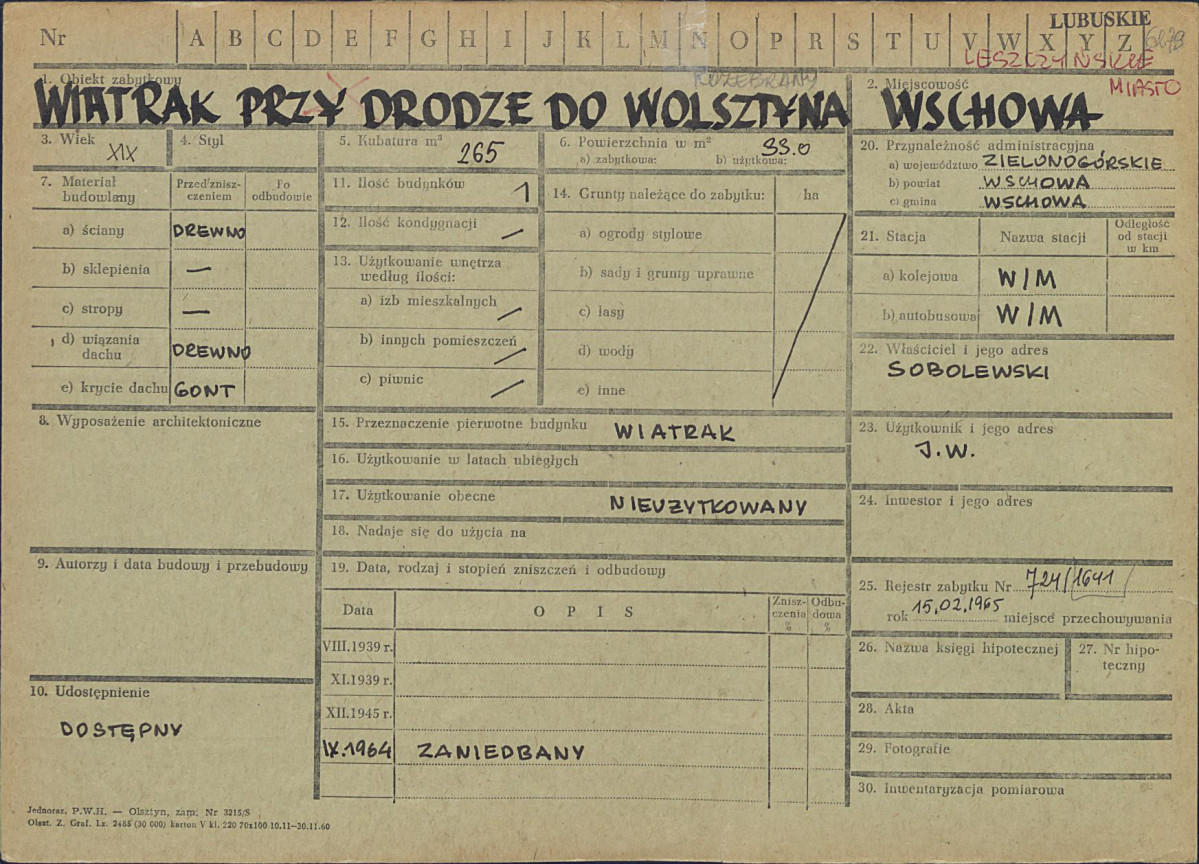 LUBUSKIE
Nr A B C D E F G H I J K L M N O P R S T U V W X Y Z
LESZCZYŃSKIE
MIASTO
ROZEBRANY
1. Obiekt zabytkowy
WIATRAK PRZY DRODZE DO WOLSZTYNA
2. Miejscowość
WSCHOWA
3. Wiek XIX
4. Styl
5. Kubatura m³ 265
6. Powierzchnia w m² 33.0
a) zabytkowa: b) użytkowa:
7. Materiał budowlany
Przed zniszczeniem
Po odbudowie
a) ściany DREWNO
b) sklepienia —
c) stropy —
d) wiązania dachu DREWNO
e) krycie dachu GONT
8. Wyposażenie architektoniczne
9. Autorzy i data budowy i przebudowy
10. Udostępnienie
DOSTĘPNY
11. Ilość budynków 1
12. Ilość kondygnacji —
13. Użytkowanie wnętrza
według ilości:
a) izb mieszkalnych —
b) innych pomieszczeń —
c) piwnic —
14. Grunty należące do zabytku: ha
a) ogrody stylowe
b) sady i grunty uprawne
c) lasy
d) wody
e) inne
15. Przeznaczenie pierwotne budynku WIATRAK
16. Użytkowanie w latach ubiegłych
17. Użytkowanie obecne NIEUZYTKOWANY
18. Nadaje się do użycia na
19. Data, rodzaj i stopień zniszczeń i odbudowy
Data OPIS Zniszczenia % Odbudowa %
VIII.1939 r.
XI.1939 r.
XII.1945 r.
IX.1964 ZANIEDBANY
20. Przynależność administracyjna
a) województwo ZIELONOGÓRSKIE
b) powiat WSCHOWA
c) gmina WSCHOWA
21. Stacja Nazwa stacji Odległość od stacji w km
a) kolejowa W/M
b) autobusowa W/M
22. Właściciel i jego adres
SOBOLEWSKI
23. Użytkownik i jego adres
J.W.
24. Inwestor i jego adres
25. Rejestr zabytku Nr 724/1641
rok 15.02.1965 miejsce przechowywania
26. Nazwa księgi hipotecznej
27. Nr hipoteczny
28. Akta
29. Fotografie
30. Inwentaryzacja pomiarowa
Jednoraz. P.W.H. — Olsztyn, zam. Nr 3215/S
Olszt. Z. Graf. Lz. 2485 (30 000) karton V kl. 220 70x100 10.11—30.11.60